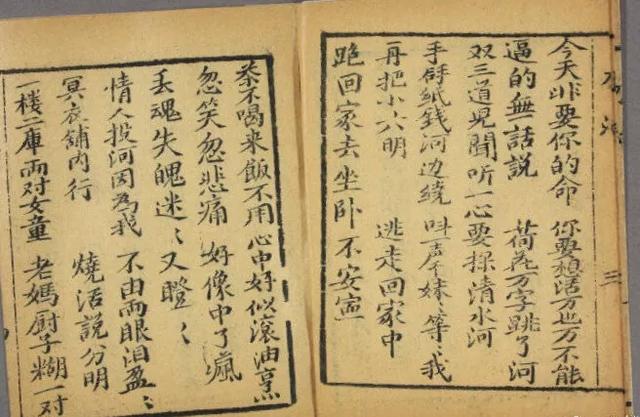 今天非要你的命 你要想活万也万不能
逼的無話說 荷花万字跳了河
双三道兒聞听一心要採清水河
手 紙钱河边繞 叫声 妹、等、我
再把小六明 逃走回家中
跑回家去坐卧不安寧
三
茶不喝来飯不用心中好似滚油烹
忽笑忽悲痛 好像中了瘋
丢魂失魄迷、又瞪、
情人投河因為我 不由両眼泪盈、
冥衣舖内行 燒活說分明
一楼二庫両对女童 老媽厨子糊一对